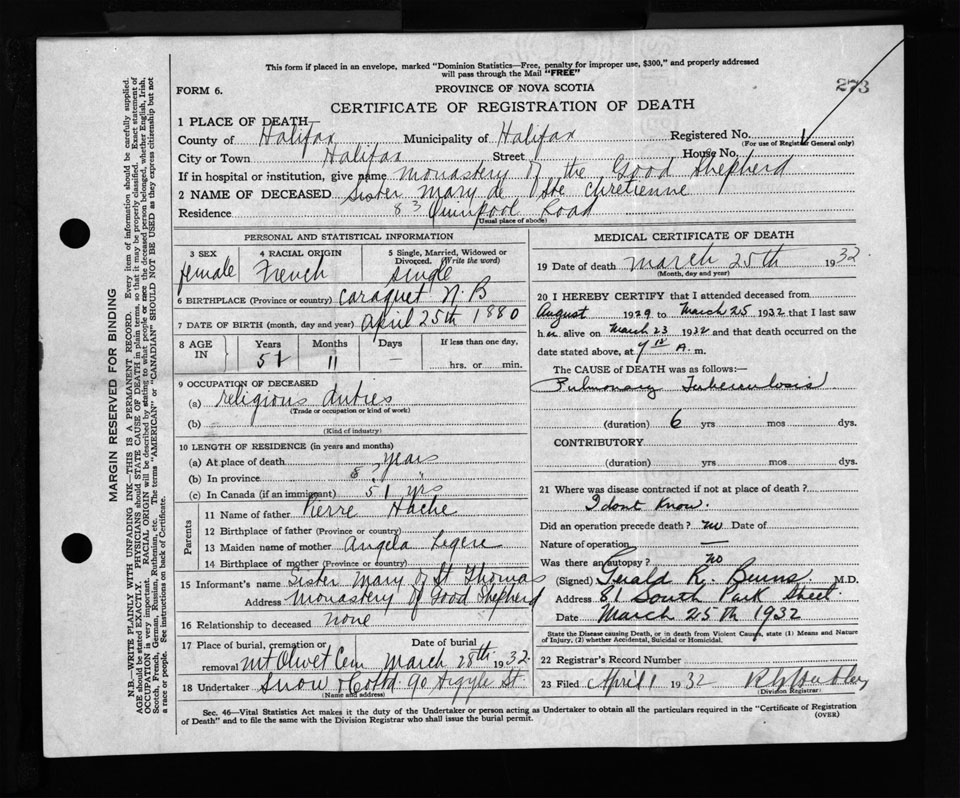 This form if placed in an envelope, marked "Dominion Statistics—Free, penalty for improper use, $300," and properly addressed
will pass through the Mail "FREE"
273
FORM 6.
PROVINCE OF NOVA SCOTIA
CERTIFICATE OF REGISTRATION OF DEATH
1 PLACE OF DEATH
County of Halifax Municipality of Halifax Registered No.
(For use of Registrar General only)
City or Town Halifax Street House No.
If in hospital or institution, give name Monastery of the Good Shepherd
2 NAME OF DECEASED Sister Mary de Ste Chretienne
Residence 83 Quinpool Road
(Usual place of abode)
PERSONAL AND STATISTICAL INFORMATION
3 SEX female
4 RACIAL ORIGIN French
5 Single, Married, Widowed or Divorced. (Write the word) single
6 BIRTHPLACE (Province or country) Caraquet N.B
7 DATE OF BIRTH (month, day and year) April 25th 1880
8 AGE IN
Years Months Days If less than one day,
51 11 — hrs. or min.
9 OCCUPATION OF DECEASED
(a) religious duties
(Trade or occupation or kind of work)
(b)
(Kind of industry)
10 LENGTH OF RESIDENCE (in years and months)
(a) At place of death years
(b) In province 8 "
(c) In Canada (if an immigrant) 51 yrs
Parents
11 Name of father Pierre Hache
12 Birthplace of father (Province or country)
13 Maiden name of mother Angela Legere
14 Birthplace of mother (Province or country)
15 Informant's name Sister Mary of St Thomas
Address Monastery of Good Shepherd
16 Relationship to deceased none
17 Place of burial, cremation or removal Mt Olivet Cem Date of burial March 28th 1932
18 Undertaker Snow & Co Ltd 90 Argyle St
(Name and address)
MEDICAL CERTIFICATE OF DEATH
19 Date of death March 25th 1932
(Month, day and year)
20 I HEREBY CERTIFY that I attended deceased from
August 1929 to March 25 1932 that I last saw
her alive on March 23 1932 and that death occurred on
date stated above, at A. m.
The CAUSE OF DEATH was as follows:—
Pulmonary Tuberculosis
(duration) 6 yrs mos dys.
CONTRIBUTORY
(duration) yrs. mos. dys.
21 Where was disease contracted if not at place of death?
I dont know.
Did an operation precede death? no Date of
Nature of operation —
Was there an autopsy? no
(Signed) Gerald R. Burns. M.D.
Address 81 South Park Street.
Date March 25th 1932
State the Disease causing Death, or in death from Violent Causes, state (1) Means and Nature
of Injury, (2) whether Accidental, Suicidal or Homicidal.
22 Registrar's Record Number
23 Filed April 1 1932
(Division Registrar)
Sec. 46—Vital Statistics Act makes it the duty of the Undertaker or person acting as Undertaker to obtain all the particulars required in the "Certificate of Registration
of Death" and to file the same with the Division Registrar who shall issue the burial permit.
(OVER)
MARGIN RESERVED FOR BINDING
N.B.—WRITE PLAINLY WITH UNFADING INK—THIS IS A PERMANENT RECORD. Every item of information should be carefully supplied.
AGE should be stated EXACTLY. PHYSICIANS should STATE CAUSE OF DEATH in plain terms, so that it may be properly classified. Exact statement of
OCCUPATION is very important. RACIAL ORIGIN will be described by stating to what people or race the deceased person belonged, whether English, Irish,
Scotch, French, German, Russian, Ruthenian, etc. The terms "AMERICAN" or "CANADIAN" SHOULD NOT BE USED as they express citizenship but not
a race or people. See instructions on back of Certificate.